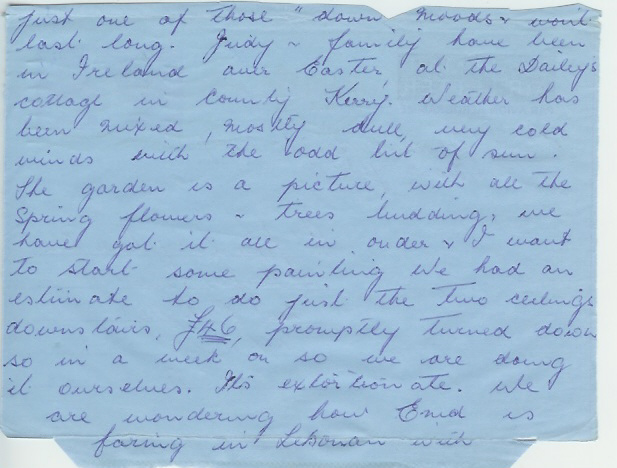 just one of those "down moods & won't
last long. Judy & family have been
in Ireland over Easter, at the Dailey's
cottage in County Kerry. Weather has
been mixed, mostly dull, very cold
winds with the odd bit of sun.
The garden is a picture, with all the
Spring flowers & trees budding, we
have got it all in order & I want
to start some painting we had an
estimate to do just the two ceilings
downstairs, £46, promptly turned down
so in a week or so we are doing
it ourselves. It's extortionate. We
are wondering how Enid is
faring in Lebonan with